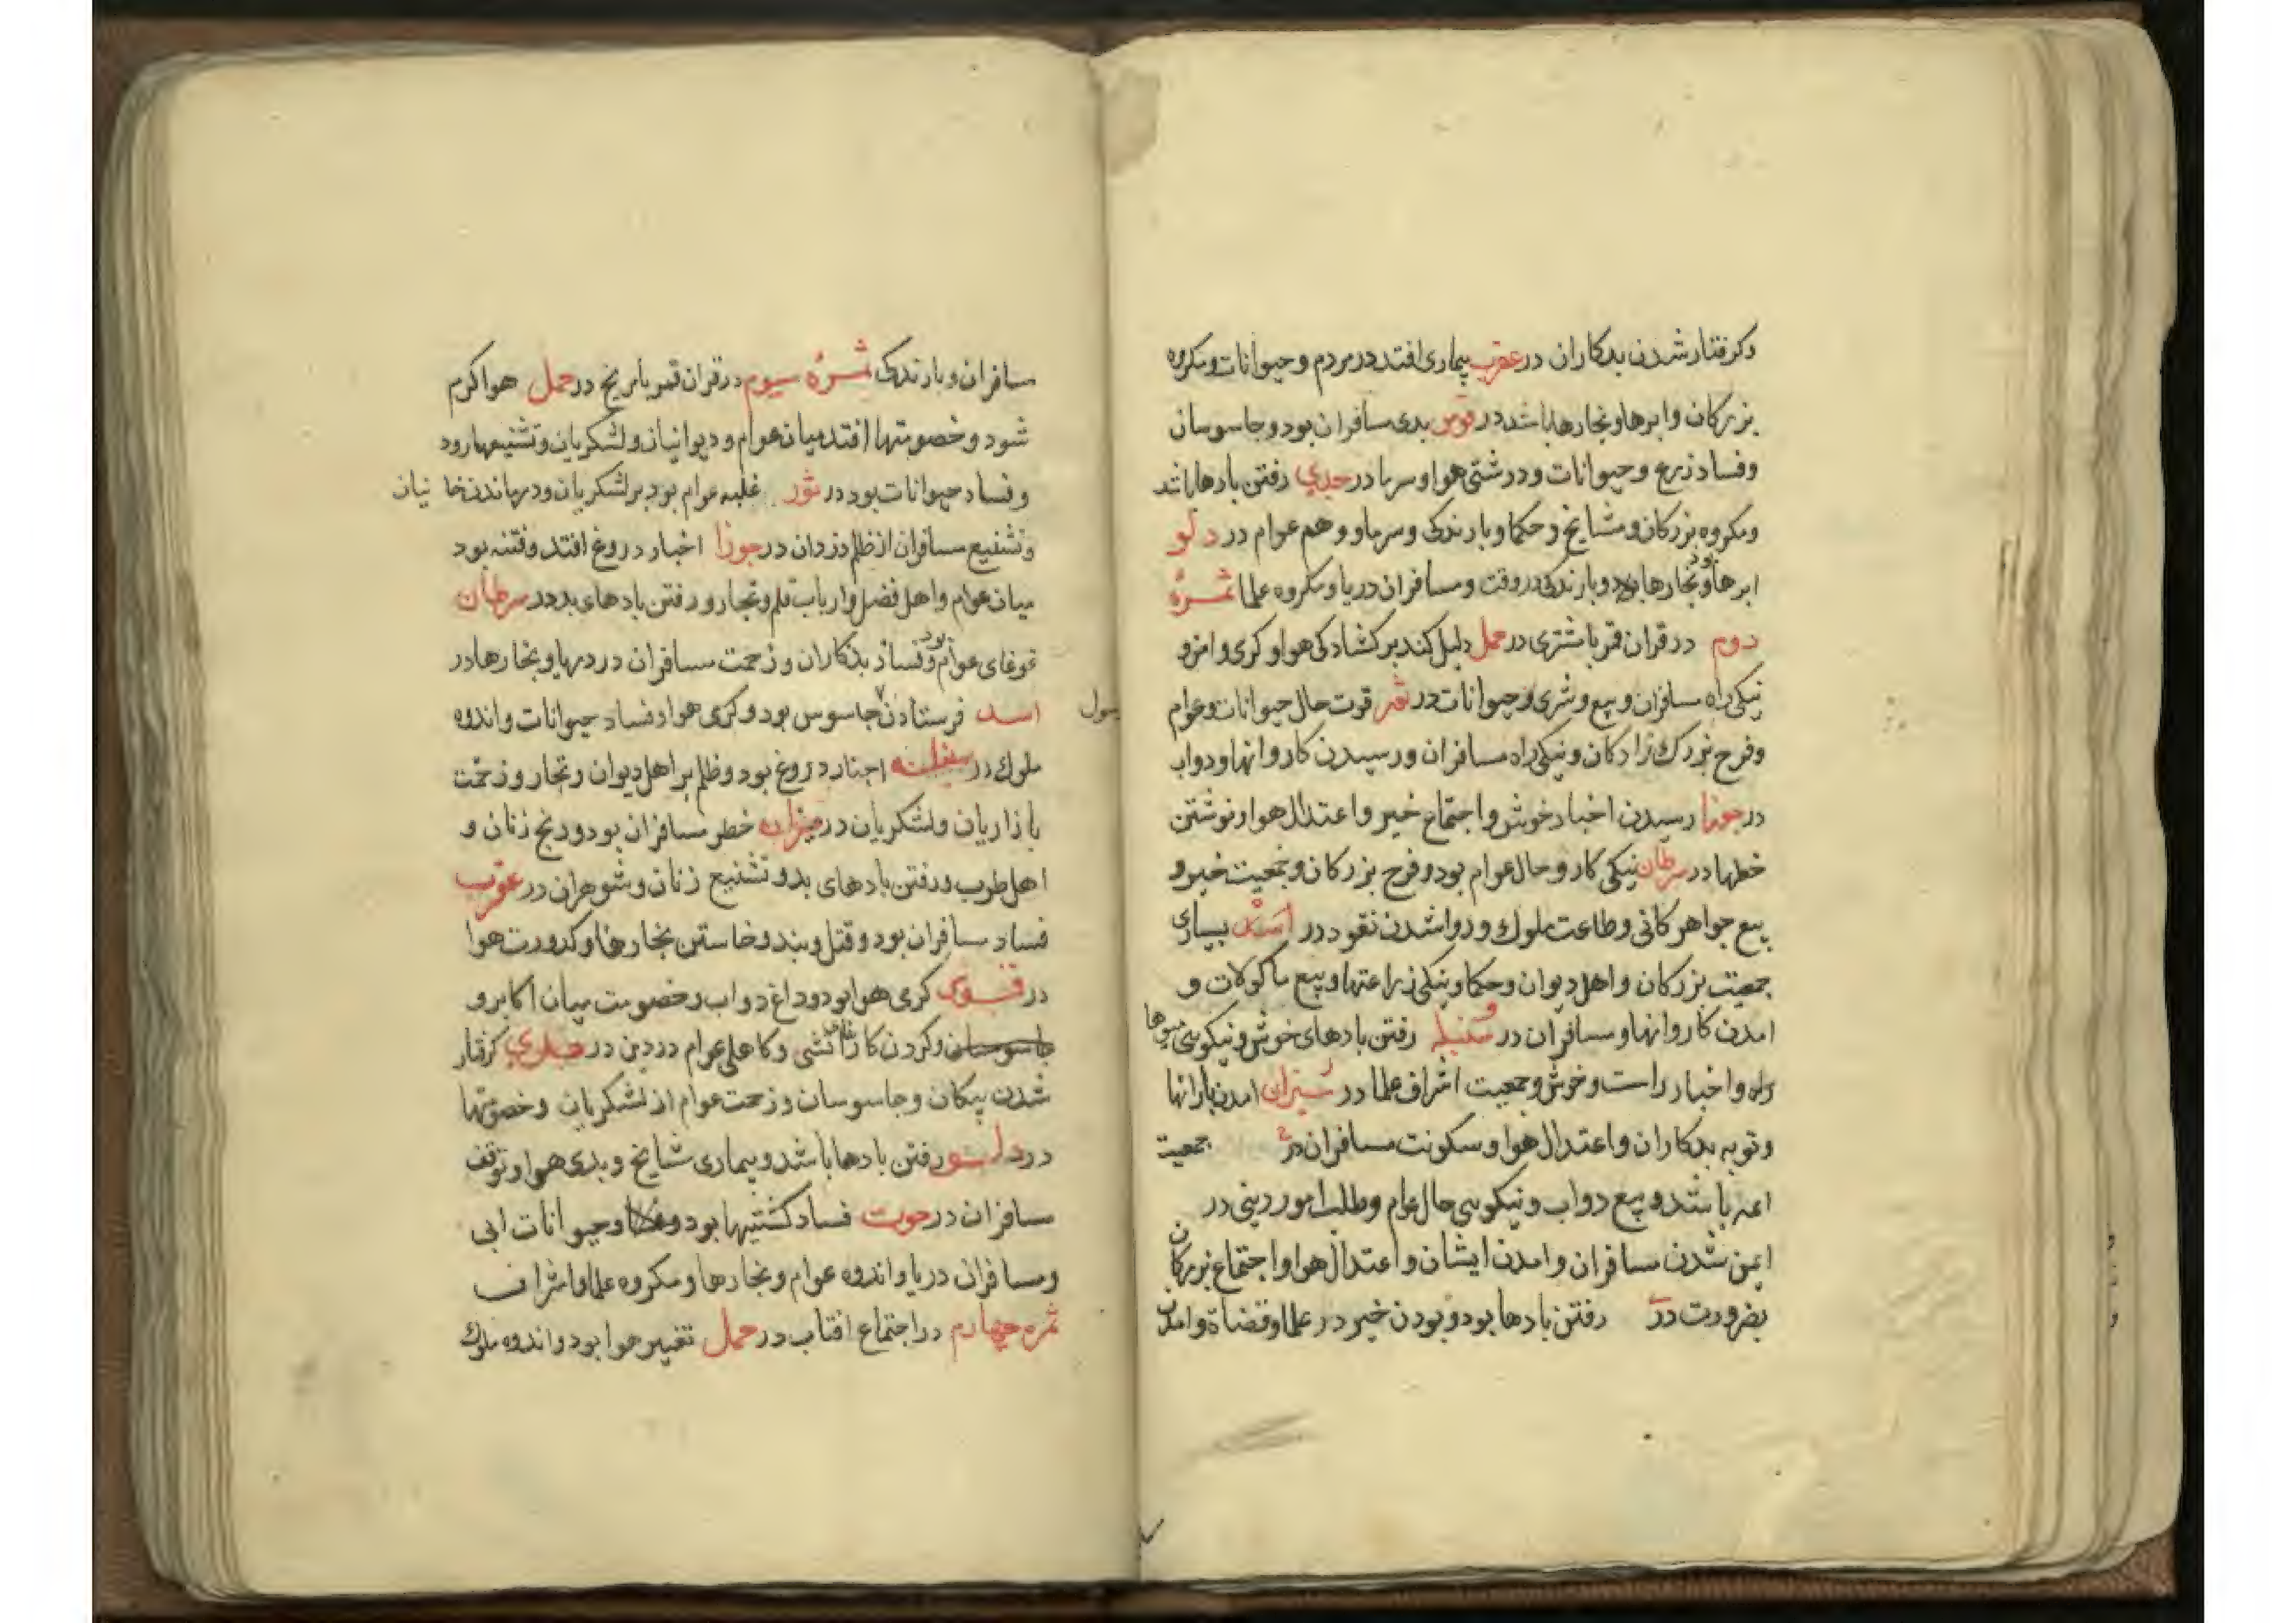 وکرفتار شدن بدکاران در عقرب بیماری افتد در مردم و حیوانات و مکروه
بزرکان و ابرها و بخارها باشد در قوس بدی مسافران بود و جاسوسان
و فساد زرع و حیوانات و درشتی هوا و سرما در جدی رفتن بادها باشد
و مکروه بزرکان و مشایخ و حکما و بارندکی و سرما و وهم عوام در دلو
ابرها و بخارها بود و بارندکی در وقت و مسافران دریا و مکروه علما ثمرهٔ
دوم در قران قمر با مشتری در حمل دلیل کند بر کشادکی هوا و کرمی و امن و
نیکی راه مسافران و بیع و شری و حیوانات در ثور قوت حال حیوانات و عوام
و فرح بزرک زادکان و نیکی راه مسافران و رسیدن کاروانها و دواب
در جوزا رسیدن اخبار خوش و اجتماع خیر و اعتدال هوا و نوشتن
خطها در سرطان نیکی کار و حال عوام بود و فرح بزرکان و جمعیت خیر و
بیع جواهر کانی و طاعت ملوک و روا شدن نقود در اسد بسیاری
جمعیت بزرکان و اهل دیوان و حکما و نیکی زراعتها و بیع ماکولات و
امدن کاروانها و مسافران در سنبله رفتن بادهای خوش و نیکویی میوها
راه و اخبار راست و خوش و جمعیت اشراف علما در میزان امدن بارانها
و توبه بدکاران و اعتدال هوا و سکونت مسافران در جمعیت
ائمه باشد و بیع دواب و نیکویی حال عوام و طلب امور دینی در
ایمن شدن مسافران و امدن ایشان و اعتدال هوا و اجتماع بزرکان
بضرورت در رفتن بادها بود و بودن خیر در علما و قضاة و امدن
مسافران و بارندکی ثمرهٔ سیوم در قران قمر با مریخ در حمل هوا کرم
شود و خصومتها افتد میان عوام و دیوانیان و لشکریان و تشنیعها رود
و فساد حیوانات بود در ثور غلبه عوام بود بر لشکریان و درماندن خا نیان
و تشنیع مسافران از ظلم دزدان در جوزا اخبار دروغ افتد و فتنه بود
میان عوام و اهل فضل و ارباب قلم و تجار و رفتن بادهای بد در سرطان
غوغای عوام بود و فساد بدکاران و زحمت مسافران در رهها و بخارها در
اسد فرستادن جاسوس بود و کرمی هوا و فساد حیوانات و اندوه
رسول
ملوک در سنبله اخبار دروغ بود و ظلم بر اهل دیوان و تجار و زحمت
بازاریان و لشکریان در میزان خطر مسافران بود و رنج زنان و
اهل طرب و رفتن بادهای بد و تشنیع زنان و شوهران در عقرب
فساد مسافران بود و قتل و بند و خاستن بخارها و کدورت هوا
در قوس کرمی هوا بود و داغ دواب و خصومت میان اکابر و
جاسوسان و کردن کارها و کاهلی عوام در دین در جدی کرفتار
شدن پیکان و جاسوسان و زحمت عوام از لشکریان و خصومتها
در دلو رفتن بادها باشد و بیماری مشایخ و بدی هوا و توقف
مسافران در حوت فساد کشتیها بود و حیوانات ابی
و مسافران دریا و اندوه عوام و بخارها و مکروه علما و اشراف
ثمره چهارم در اجتماع افتاب در حمل تغییر هوا بود و اندوه ملوک